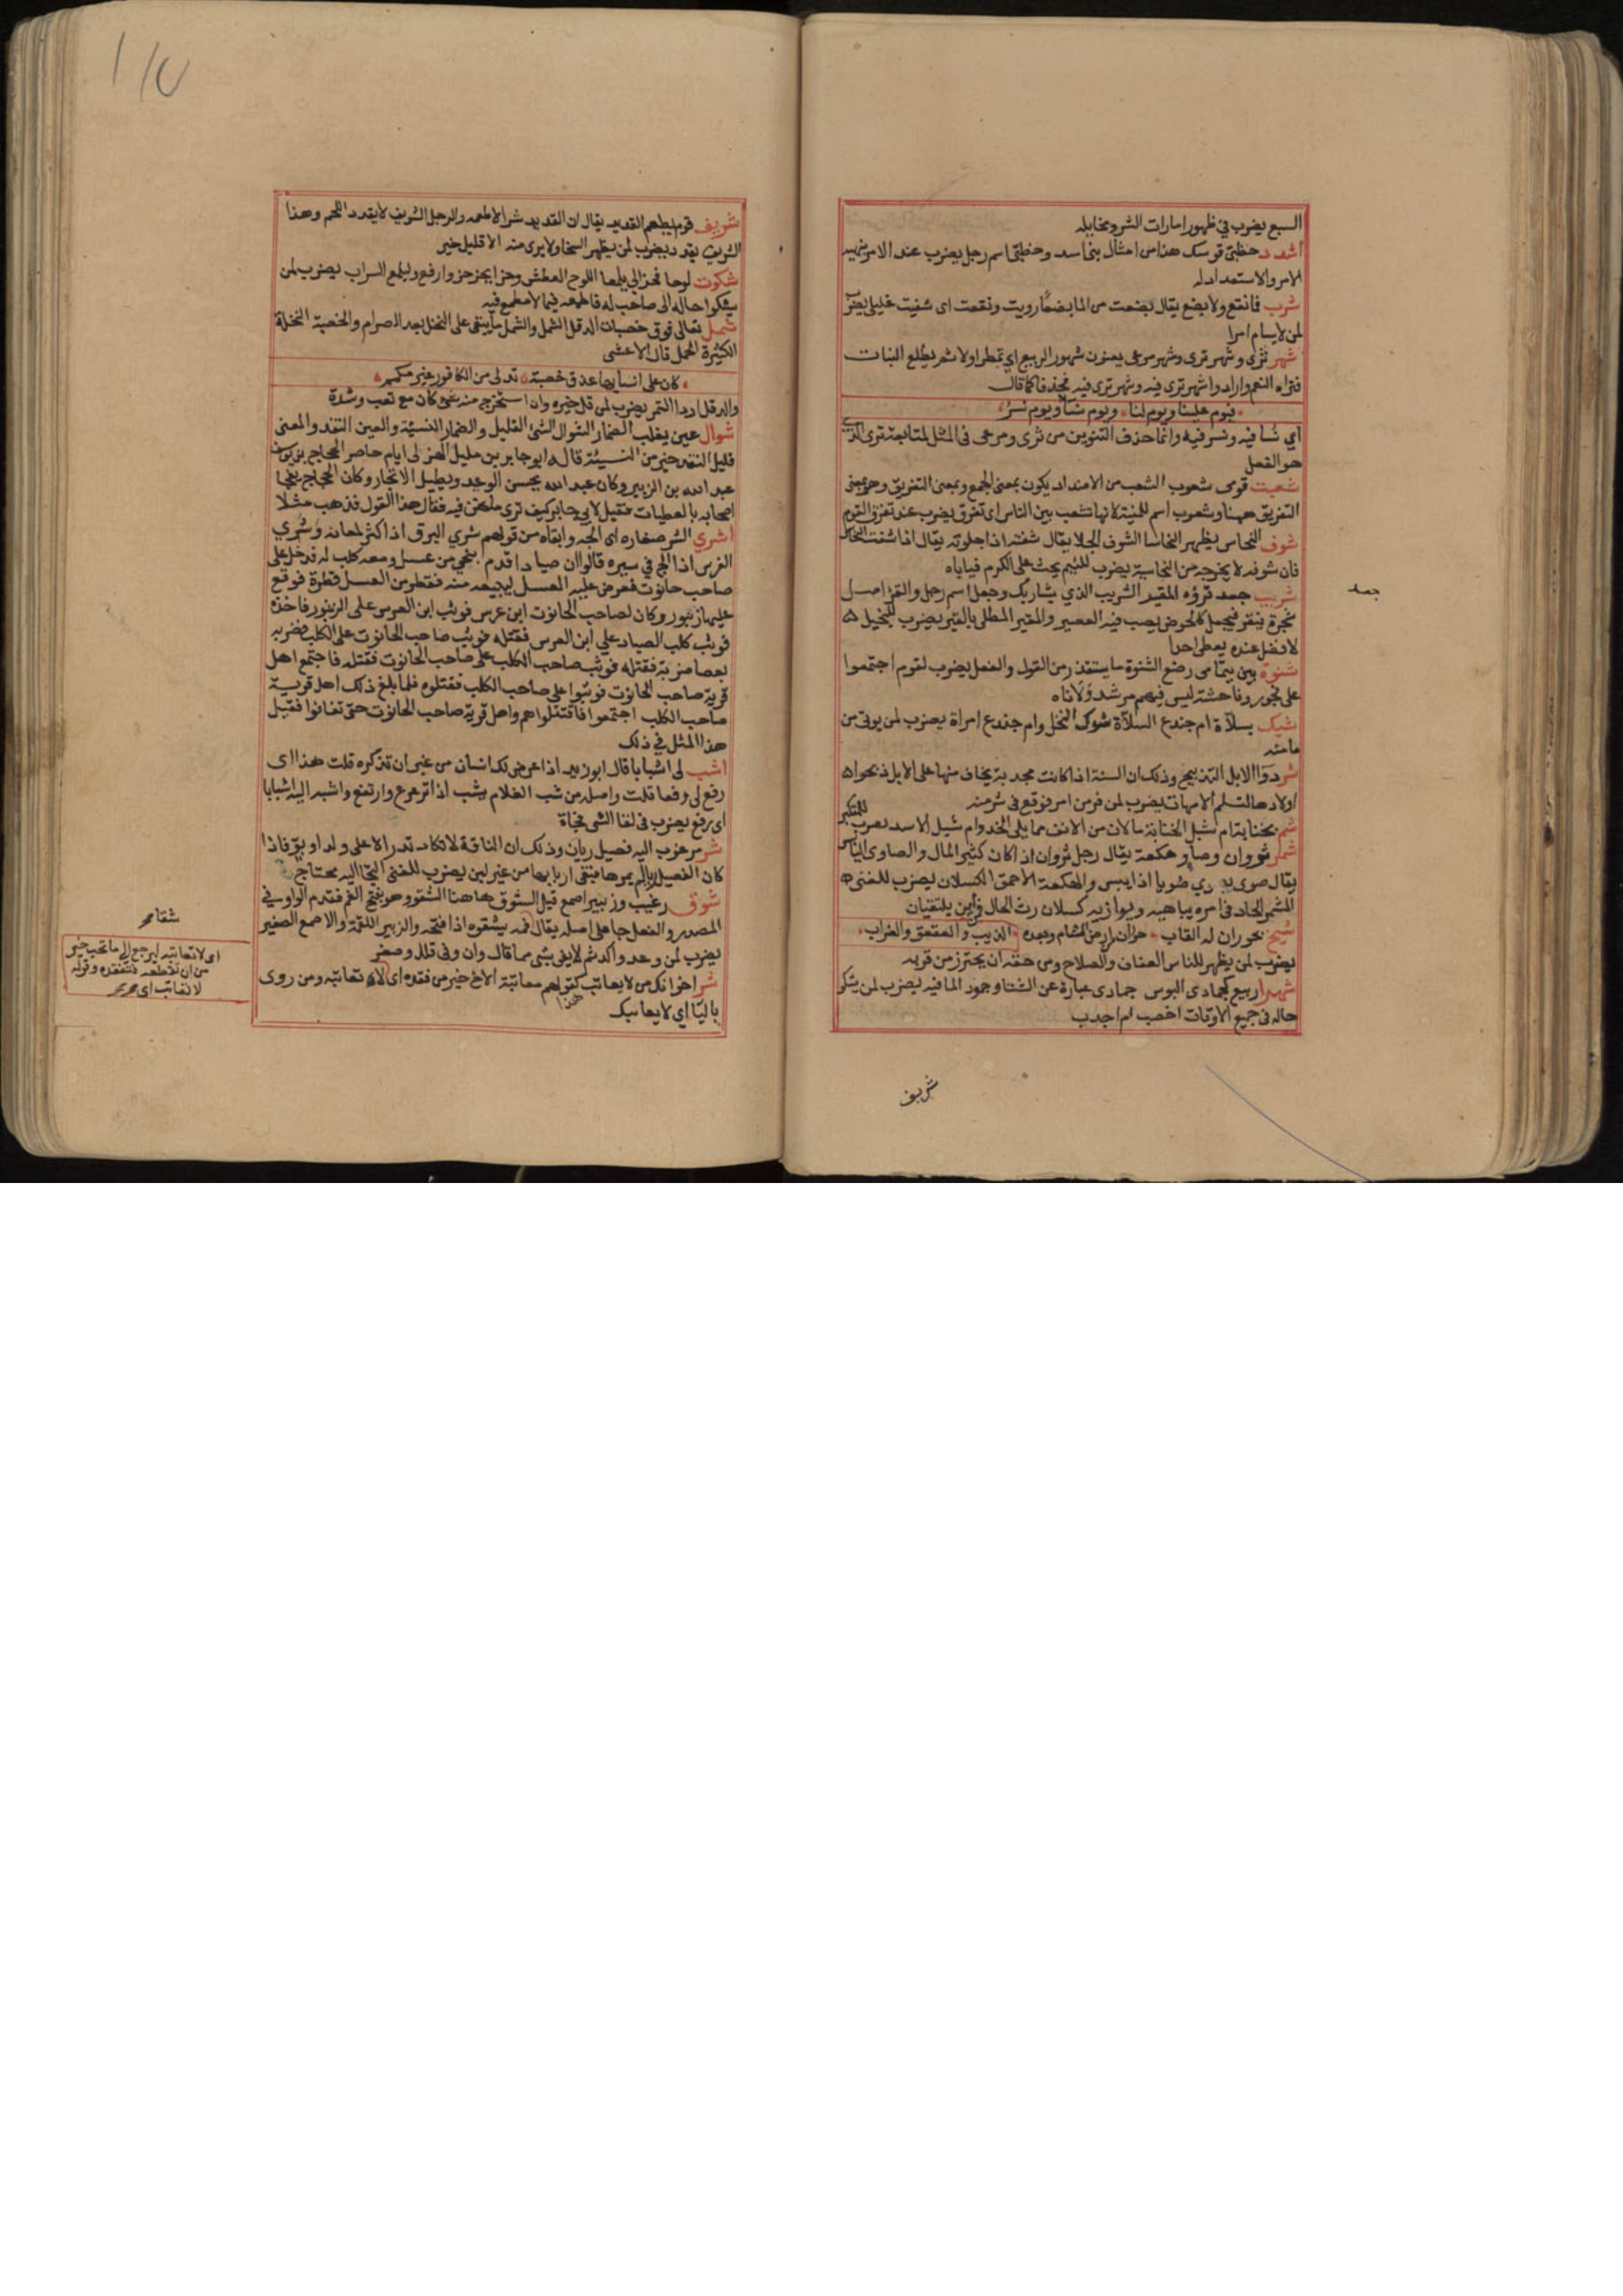 السبع يضرب في ظهور امارات الشر ومخايله
اشدد حظبى قوسك هذا من امثال بني اسد وحظبى اسم رجل يضرب عند الامر بتهيية
الامر والاستعداد له
شرب فما نقع ولا بضع يقال بضعت من الما بضعا رويت ونقعت اى شفيت غليلي يضرب
لمن لا يسام امرا
شهر ثرى وشهر ترى وشهر مرعى يعنون شهور الربيع اي تمطر اولا ثم يطلع النبات
فتراه النعم وارادوا شهر ثرى فيه وشهر ترى فيه فحذف كما قال
فيوم علينا ويوم لنا ويوم نسا ويوم نسر
اي نسا فيه ونسر فيه وانما حذف التنوين من ثرى ومرعى فى المثل لمتابعة ترى الذي
هو الفعل
شعبت قومى شعوب الشعب من الاضداد يكون بمعنى الجمع وبمعنى التفريق وهو بمعنى
التفريق ههنا وشعوب اسم للمنية لانها تشعب بين الناس اى تفرق يضرب عند تفرق القوم
شوف النحاس يظهر النحاسا الشوف الجلا يقال شفته اذا جلوته يقال اذا شفت النحاس
فان شوفه لا يخرجه من النحاسية يضرب للئيم يحث على الكرم فياباه
جعد
شريب جعد قروه المقير الشريب الذي يشاربك وجعل اسم رجل والقرو اصل
شجرة ينقر فيجعل كالحوض يصب فيه العصير والمقير المطلى بالقير يضرب للبخيل
لا فضل عنده يعطى احدا
شنوة بين يتامى رضع الشنوة ما يستقذر من القول والفعل يضرب لقوم اجتمعوا
على فجور وفاحشة ليس فيهم مرشد ولا ناه
شيك بسلاة ام جندع السلاة شوك النخل وام جندع امراة يضرب لمن يوتى من
مامنه
شر دوا الابل التذبيح وذلك ان السنة اذا كانت مجدبة يخاف منها على الابل ذبحوا
اولادها لتسلم الامهات يضرب لمن فر من امر فوقع فى شر منه
شم بخنابة ام شبل الخنابة ما لان من الانف مما يلى الخد وام شبل الاسد يضرب للمتكبر
شمر ثروان وصاو هكعة يقال رجل ثروان اذا كان كثير المال والصاوى اليابس
يقال صوى يصوي صويا اذا يبس والهكعة الاحمق الكسلان يضرب للغنى
المشمر الجاد فى امره يباهيه ويوازيه كسلان رث الحال فاين يلتقيان
شيخ بحوران له القاب الذيب والعقعق والغراب
يضرب لمن يظهر للناس العفاف والصلاح ومن حقه ان يحترز من قربه
شهرا ربيع كجمادى البوس جمادى عبارة عن الشتا وجمود الما فيه يضرب لمن يشكو
حاله فى جميع الاوقات اخصب ام اجدب
شريف
شريف قوم يطعم القديد يقال ان القديد شر الاطعمه والرجل الشريف لا يقدد اللحم وهذا
الشريف يقدد يضرب لمن يظهر السخا ولا يرى منه الا قليل خير
شكوت لوحا فحزا لي يلمعا اللوح العطش وحزا يحزو حزوا رفع واليلمع السراب يضرب لمن
يشكوا حاله الى صاحب له فاطمعه فيما لا مطمع فيه
شمل تعالى فوق خصبات الدقل الشمل والشمل ما يبقى على النخل بعد الصرام والخصبة النخلة
الكثيرة الحمل قال الاعشى
كان على انسايها عذق خصبة تدلى من الكافور غير مكمم
والدقل اردا التمر يضرب لمن قل خيره وان استخرج منه شى كان مع تعب وشدة
شوال عين يغلب الضمار الشوال الشى القليل والضمار النسيئة والعين النقد والمعنى
قليل النقد خير من النسيئة قاله ابو جابر بن مليل الهذلى ايام حاصر الحجاج بن يوسف
عبد الله بن الزبير وكان عبد الله يحسن الوعد ويطيل الانجاز وكان الحجاج يفجا
اصحابه بالعطيات فقيل لابي جابر كيف ترى ما نحن فيه فقال هذا القول فذهب مثلا
اشرى الشر صغاره اى الجه وابقاه من قولهم شرى البرق اذا كثر لمعانه وشري
الفرس اذا لج في سيره قالوا ان صيادا قدم بنحي من عسل ومعه كلب له فدخل على
صاحب حانوت فعرض عليه العسل ليبيعه منه فقطر من العسل قطرة فوقع
عليها زنبور وكان لصاحب الحانوت ابن عرس فوثب ابن العرس على الزنبور فاخذه
فوثب كلب الصياد على ابن العرس فقتله فوثب صاحب الحانوت على الكلب فضربه
بعصا ضربة فقتله فوثب صاحب الكلب على صاحب الحانوت فقتله فاجتمع اهل
قرية صاحب الحانوت فوثبوا على صاحب الكلب فقتلوه فلما بلغ ذلك اهل قرية
صاحب الكلب اجتمعوا فاقتتلوا هم واهل قرية صاحب الحانوت حتى تفانوا فقيل
هذا المثل في ذلك
اشب لى اشبابا قال ابو زيد اذا عرض لك انسان من غير ان تذكره قلت هذا اى
رفع لى رفعا قلت واصله من شب الغلام يشب اذا ترعرع وارتفع واشبه الله اشبابا
اى رفع يضرب فى لقا الشى فجاة
شر مرغوب اليه فصيل ريان وذلك ان الناقة لا تكاد تدر الا على ولد او بو فاذا
كان الفصيل ريا لم يمرها فبقى اربابها من غير لبن يضرب للغنى التجا اليه محتاج
شوق رغيب وزبير اصمع قيل الشوق هاهنا الشقو وهو بفتح الفم فقدم الواو في
المصدر والفعل جا على اصله يقال فمه يشقوه اذا فتحه والزبير اللقمة والاصمع الصغير
يضرب لمن وعد واكد ثم لا يفى بشى مما قال وان وفى قلل وصغر
شر اخوانك من لا يعاتب كقولهم معاتبة الاخ خير من فقده اى لان تعاتبه ومن روى
باليا اي لا يعاتبك
هذا
اى لا تعاتبه ليرجع الى ما تحب خير
من ان تقطعه فتفقده وقوله